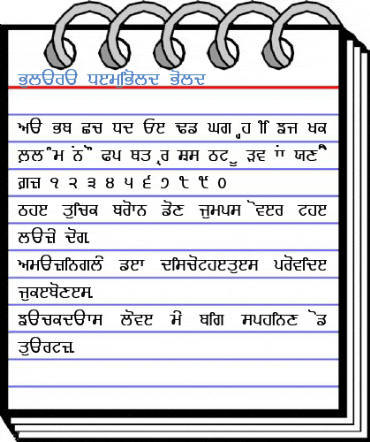 ਭਲੳਰੳ ਧੲਮਭਿੋਲਦ ਭੋਲਦ
ਅੳ ਭਬ ਛਚ ਧਦ ਓੲ ਢਡ ਘਗ ੍ਹਹ ੀਿ ਙਜ ਖਕ
ਲ਼ਲ ੰਮ ਂਨ ੌੋ ਫਪ ਥਤ ੍ਰਰ ਸ਼ਸ ਠਟ ੂੁ ੜਵ ਾਂ ਯਣ ੈੇ
ਗ਼ਜ਼ ੧ ੨ ੩ ੪ ੫ ੬ ੭ ੮ ੯ ੦
ਠਹੲ ਤੁਚਿਕ ਬਰੋਾਨ ਡੋਣ ਜੁਮਪਸ ੋਵੲਰ ਟਹੲ
ਲੳਜ਼ੇ ਦੋਗ.
ਅਮੳਜ਼ਨਿਗਲੇ ਡੲਾ ਦਸਿਚੋਟਹੲਤੁੲਸ ਪਰੋਵਦਿੲ
ਜੁਕੲਬੋਣੲਸ.
ਙੳਚਕਦੳਾਸ ਲੋਵੲ ਮੇ ਬਗਿ ਸਪਹਨਿਣ ੋਡ
ਤੁੳਰਟਜ਼.